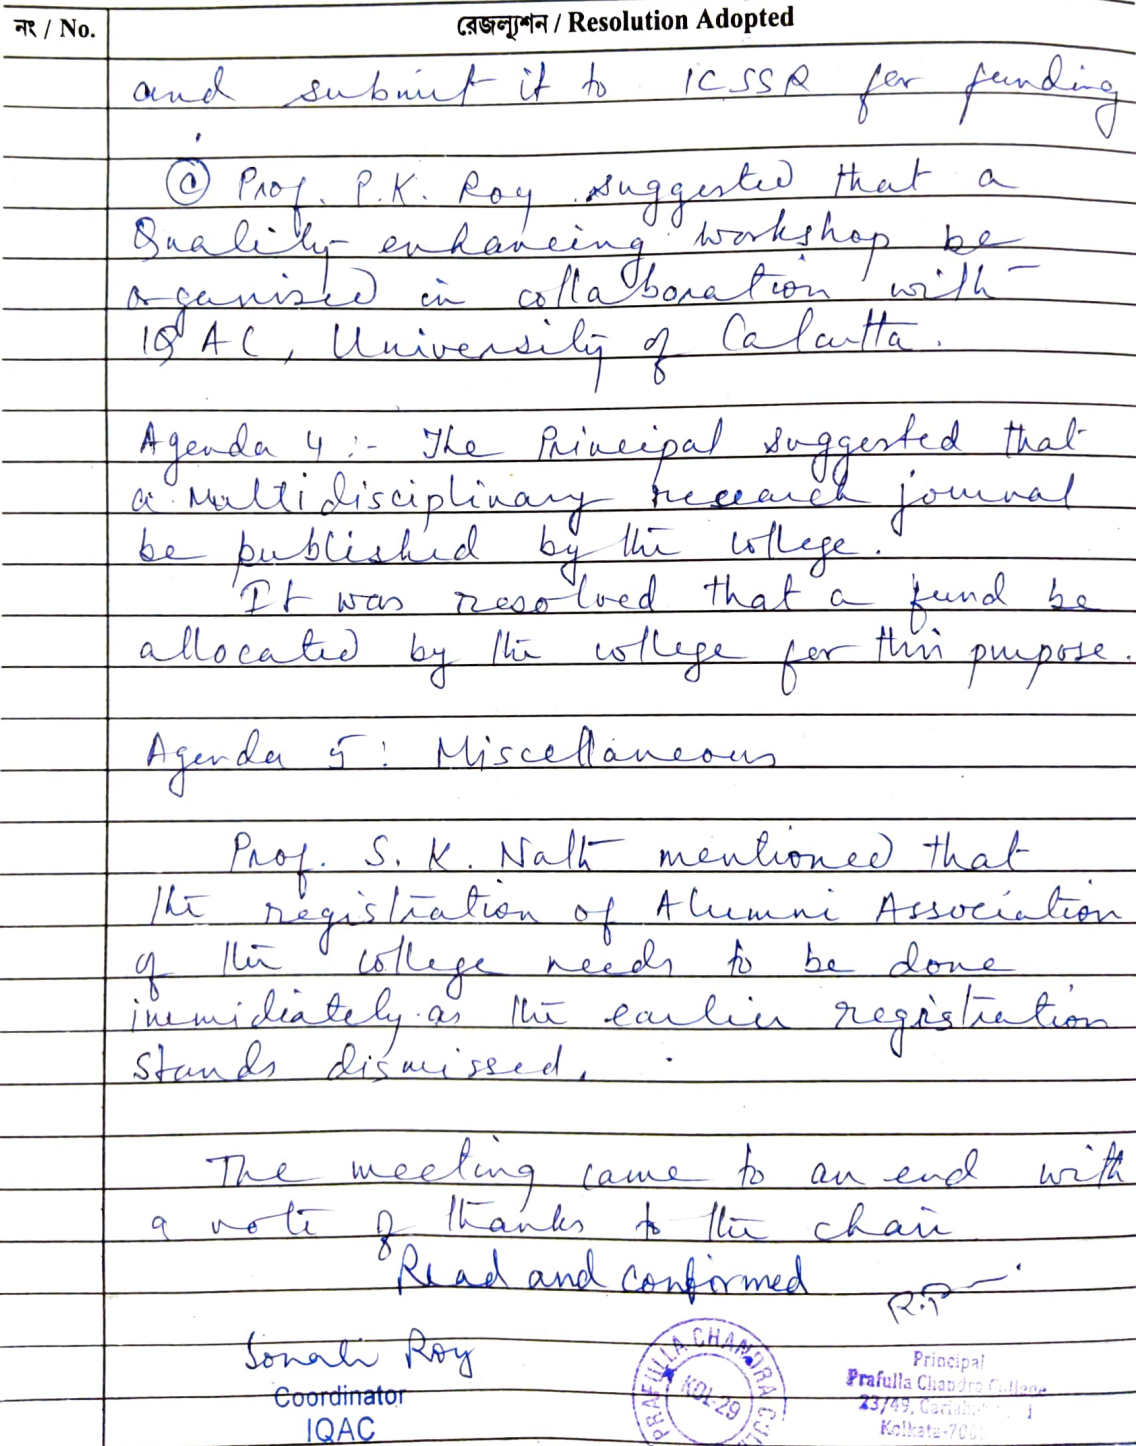 নং / No.
রেজল্যুশন / Resolution Adopted
and submit it to ICSSR for funding
Prof. P.K. Roy suggested that a
Quality enhancing workshop be
organised in collaboration with
IQAC, University of Calcutta.
Agenda 4 :- The Principal suggested that
a Multidisciplinary research journal
be published by the college.
It was resolved that a fund be
allocated by the college for this purpose.
Agenda 5 : Miscellaneous
Prof. S. K. Nath mentioned that
the registration of Alumni Association
of the college needs to be done
immidiately as the earlier registration
stands dismissed.
The meeting came to an end with
a vote of thanks to the chair
Read and confirmed
Sonali Roy
Coordinator
IQAC
PRAFULLA CHANDRA
KOL-29
Principal
Prafulla Chandra College
23/49,